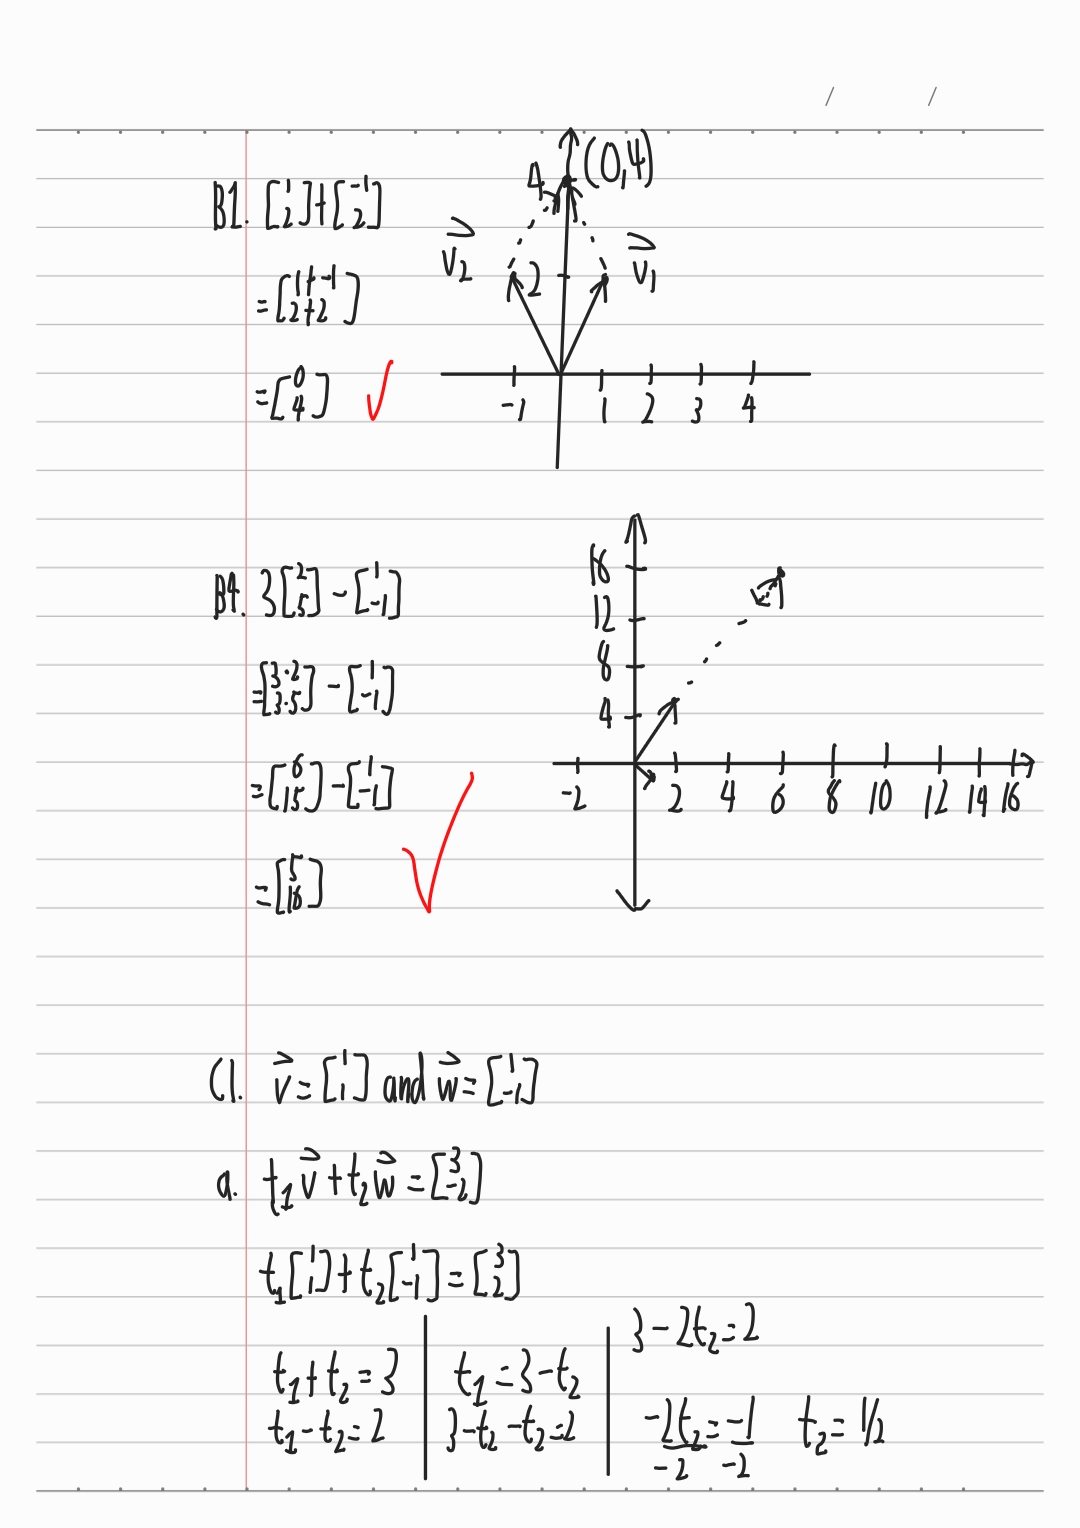 / /
B1. [1 2] + [-1 2]
= [1+-1 2+2]
= [0 4] ✓
4 (0,4)
v₂ 2 v₁
-1 1 2 3 4
B4. 3[2 5] - [1 -1]
= [3·2 3·5] - [1 -1]
= [6 15] - [1 -1]
= [5 16] ✓
16
12
8
4
-2 2 4 6 8 10 12 14 16
C1. v⃗ = [1 1] and w⃗ = [1 -1]
a. t₁v⃗ + t₂w⃗ = [3 -2]
t₁[1 1] + t₂[1 -1] = [3 2]
t₁ + t₂ = 3
t₁ - t₂ = 2
t₁ = 3 - t₂
3 - t₂ - t₂ = 2
3 - 2t₂ = 2
-2t₂ = -1 t₂ = 1/2
-2 -2